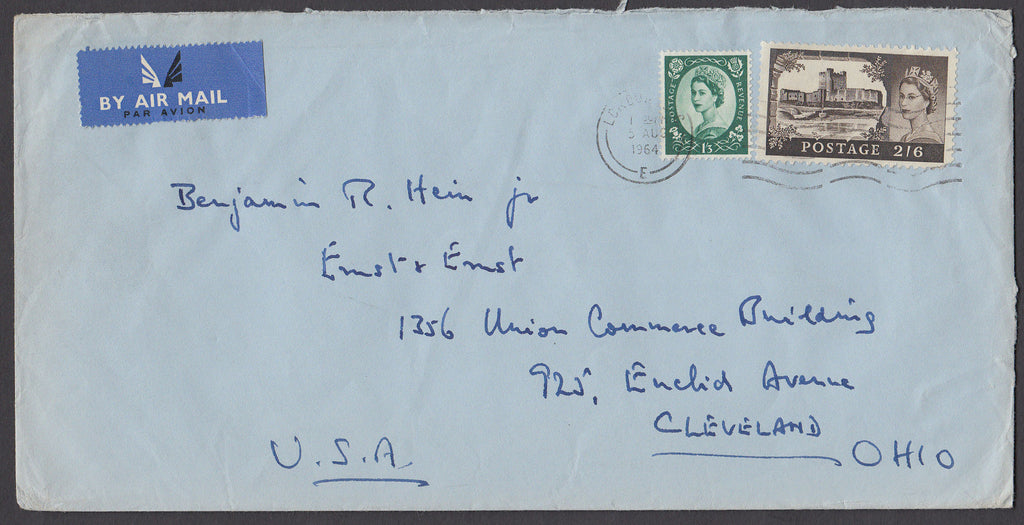 BY AIR MAIL
PAR AVION
POSTAGE
REVENUE
1/3
POSTAGE 2/6
5 AUG
1964
E
Benjamin R. Hein jr
Ernst & Ernst
1356 Union Commerce Building
925, Euclid Avenue
CLEVELAND
OHIO
U.S.A.